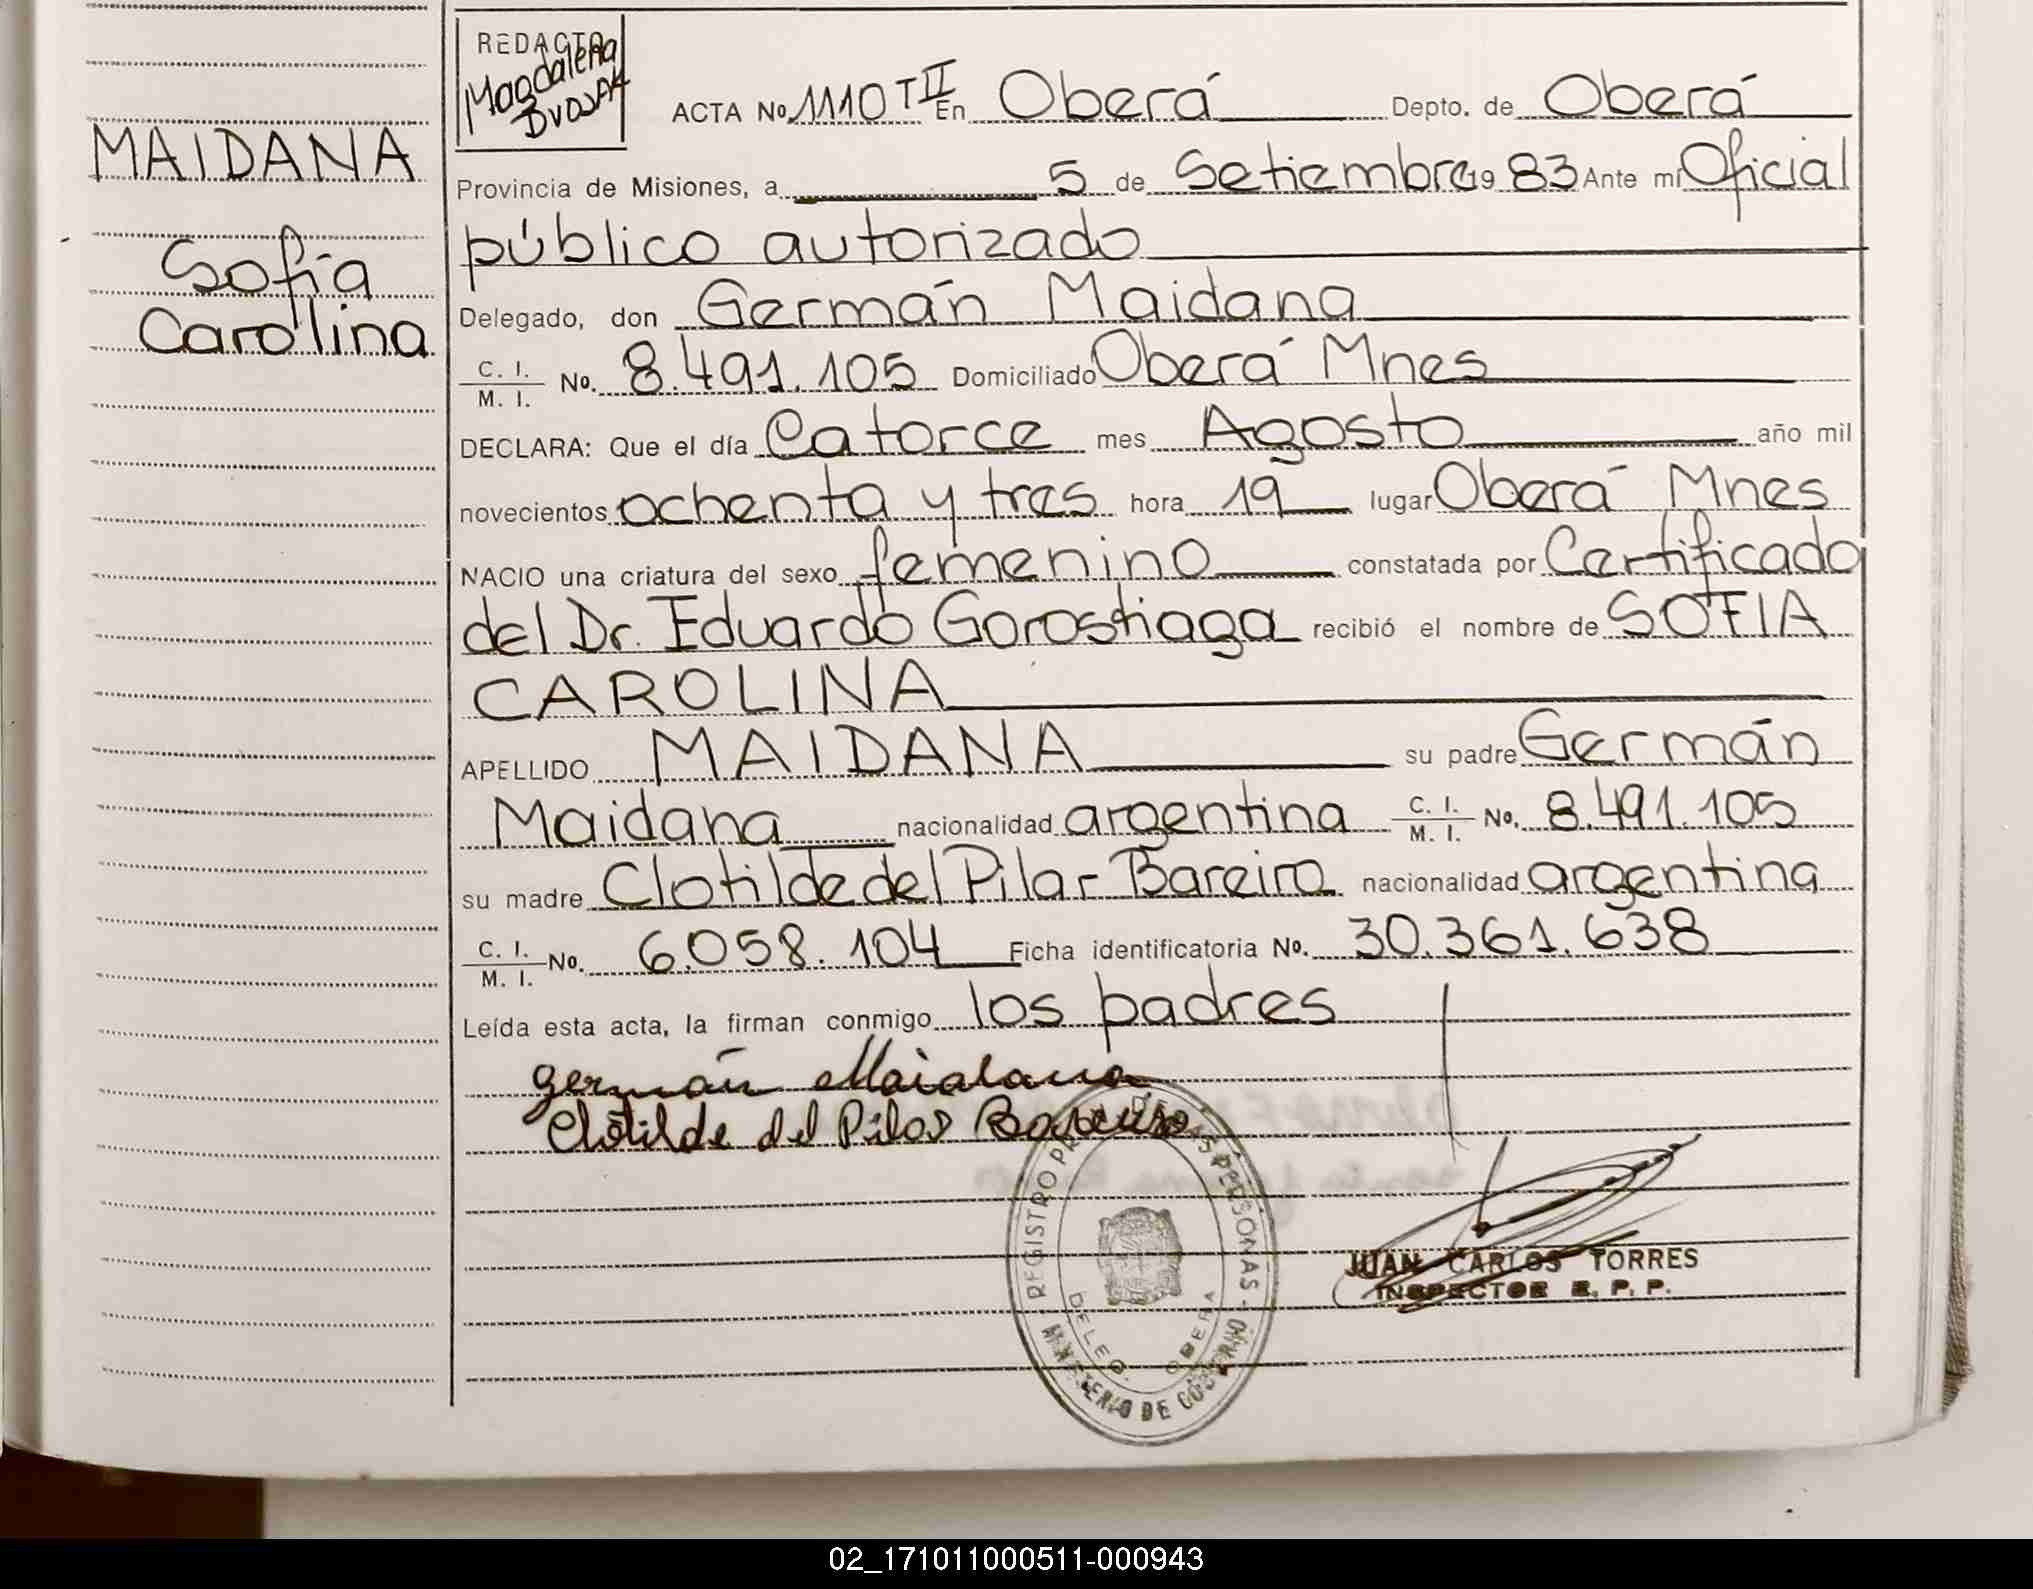 MAIDANA
Sofía
Carolina
REDACTO
Magdalena
ACTA No. 1110 T II En Oberá Depto. de Oberá
Provincia de Misiones, a 5 de Setiembre 19 83 Ante mi Oficial
público autorizado
Delegado, don Germán Maidana
C. I. / M. I. No. 8.491.105 Domiciliado Oberá Mnes
DECLARA: Que el día Catorce mes Agosto año mil
novecientos ochenta y tres hora 19 lugar Oberá Mnes
NACIO una criatura del sexo femenino constatada por Certificado
del Dr. Eduardo Gorostiaga recibió el nombre de SOFIA
CAROLINA
APELLIDO MAIDANA su padre Germán
Maidana nacionalidad argentina C. I. / M. I. No. 8.491.105
su madre Clotilde del Pilar Bareiro nacionalidad argentina
C. I. / M. I. No. 6.058.104 Ficha identificatoria No. 30.361.638
Leída esta acta, la firman conmigo los padres
germán Maidana
Clotilde del Pilar Bareiro
REGISTRO DE LAS PERSONAS
DELEG. OBERA
MINISTERIO DE GOBIERNO
JUAN CARLOS TORRES
INSPECTOR R. P. P.
02_171011000511-000943